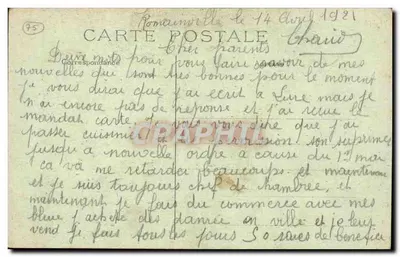 75
Romainville le 14 Avril 1921
CARTE POSTALE
Correspondance
Cher parents
Deux mots pour vous faire savoir de mes
nouvelles qui sont très bonnes pour le moment
je vous dirai que j'ai écrit a Lure mais je
n'ai encore pas de réponse et j'ai recue le
mandat carte je vous dire que j'ai
passer cuisinier et permission son suprimer
jusqu a nouvelle ordre a cause du 1er mai
ca va me retarder beaucoups et maintenant
et je suis toujours chef de chambrée et
maintenant je fais du commerce avec mes
bleue j'achete des danrée en ville et je leur
vend je fais tous les jours 50 sous de benefice